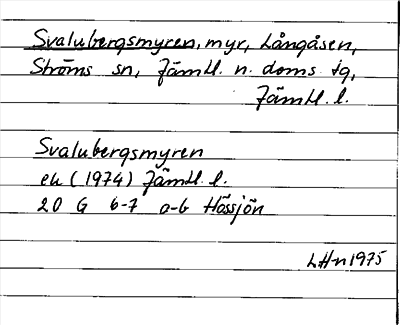 Svalubergsmyren, myr, Långåsen,
Ströms sn, Jämtl. n. doms. tg,
Jämtl. l.
Svalubergsmyren
ek (1974) Jämtl. l.
20 G 6-7 a-b Hössjön
LHn 1975